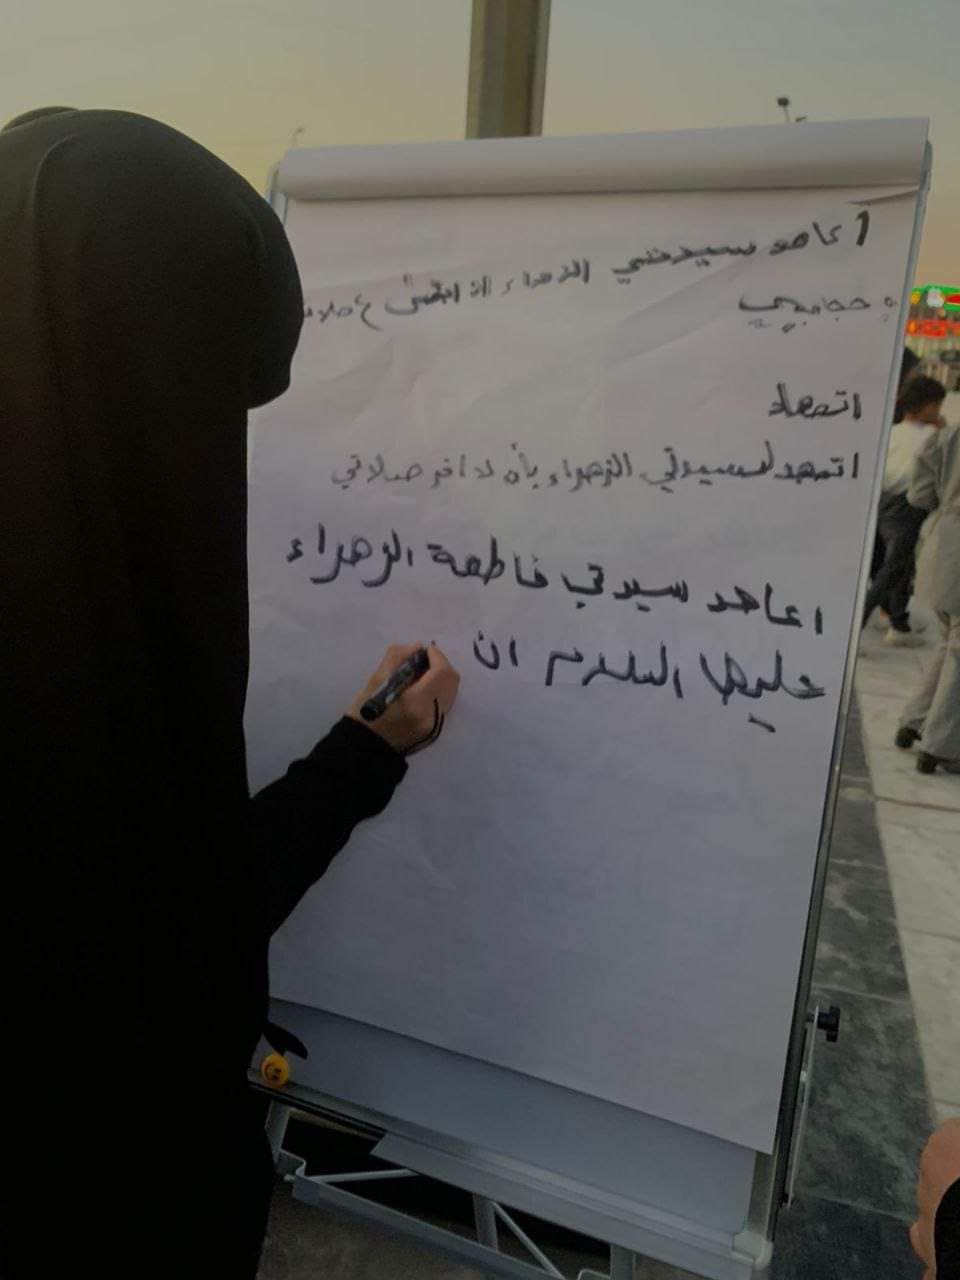 أعاهد سيدتي الزهراء ان ابقى ع صلاتي
و حجابي
اتعهد
اتعهد لسيدتي الزهراء بأن لا اخر صلاتي
اعاهد سيدتي فاطمة الزهراء
عليها السلام ان